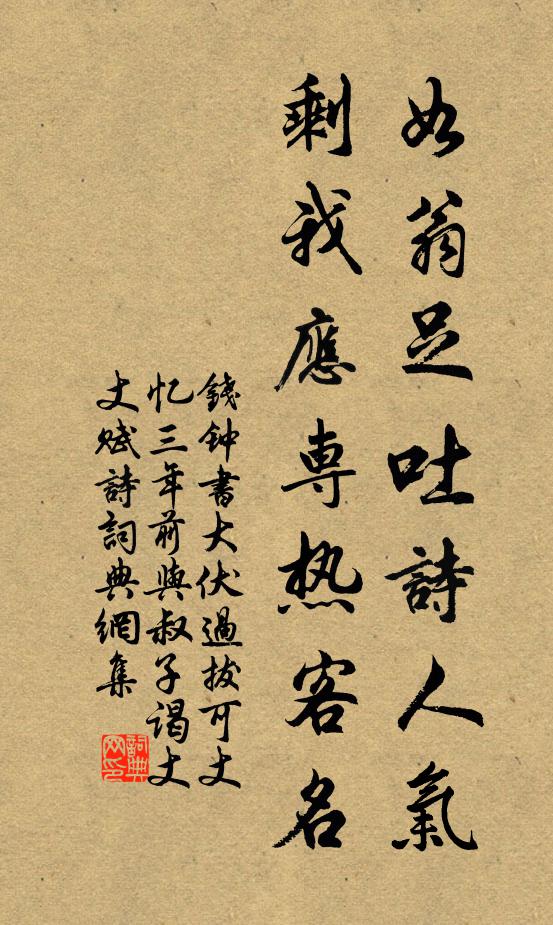 如翁足吐詩人氣
剩我應專热客名
錢钟書大伏過拔可丈
忆三年前與叔子谒丈
丈赋詩詞典網集
詞典网印